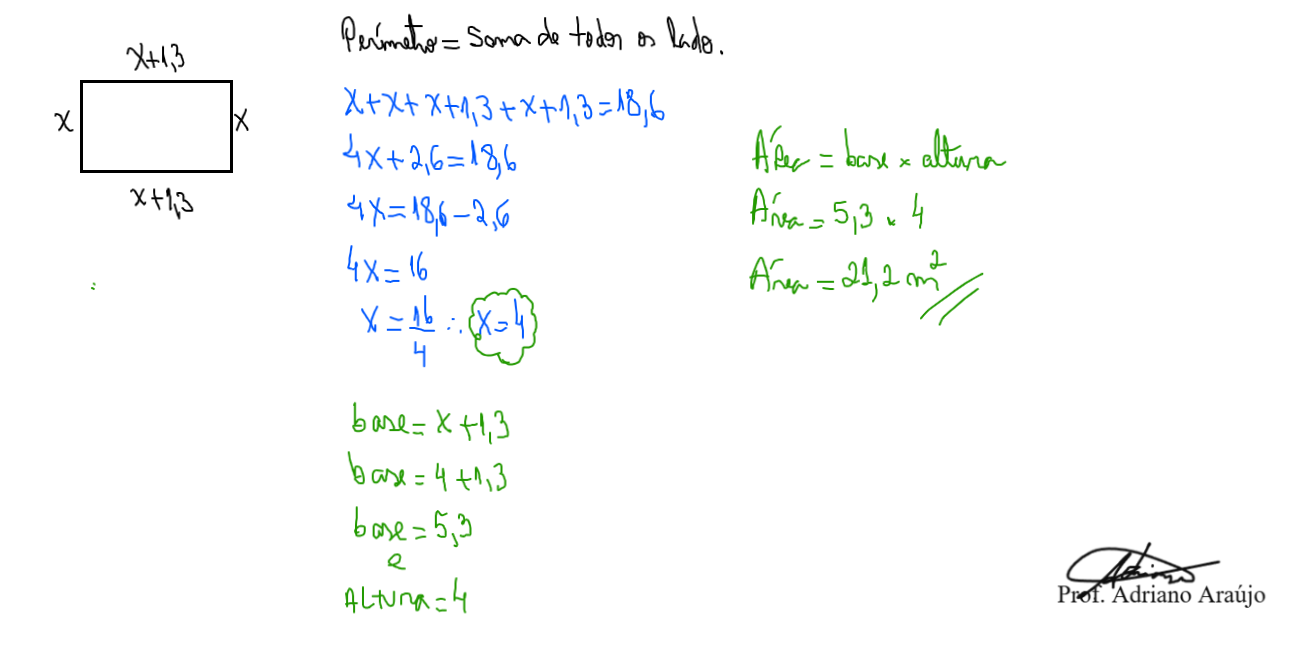 Perímetro = Soma de todos os lado.
x+1,3
x
x
x+1,3
x+x+x+1,3+x+1,3=18,6
4x+2,6=18,6
4x=18,6-2,6
4x=16
x=16/4 ∴ x=4
base=x+1,3
base=4+1,3
base=5,3
e
Altura=4
Área = base × altura
Área = 5,3 × 4
Área = 21,2 m²
Prof. Adriano Araújo